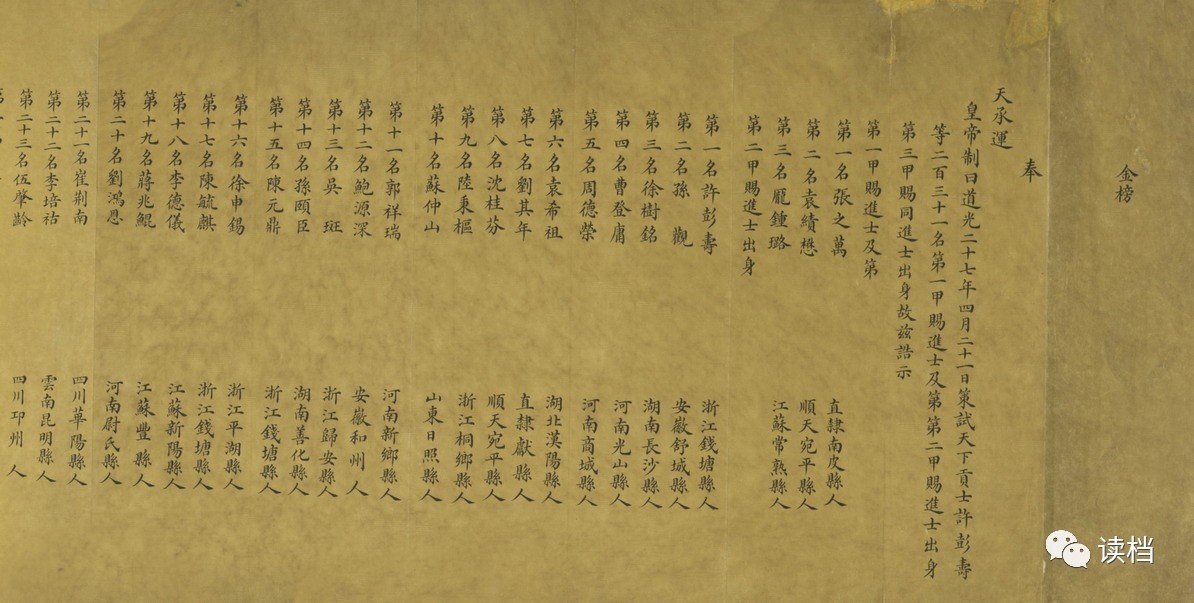 金榜
奉
天承運
皇帝制曰道光二十七年四月二十一日策試天下貢士許彭壽
等二百三十一名第一甲賜進士及第第二甲賜進士出身
第三甲賜同進士出身故茲誥示
第一甲賜進士及第
第一名張之萬 直隸南皮縣人
第二名袁績懋 順天宛平縣人
第三名龎鍾璐 江蘇常熟縣人
第二甲賜進士出身
第一名許彭壽 浙江錢塘縣人
第二名孫 觀 安徽舒城縣人
第三名徐樹銘 湖南長沙縣人
第四名曹登庸 河南光山縣人
第五名周德榮 河南商城縣人
第六名袁希祖 湖北漢陽縣人
第七名劉其年 直隸獻縣人
第八名沈桂芬 順天宛平縣人
第九名陸秉樞 浙江桐鄉縣人
第十名蘇仲山 山東日照縣人
第十一名郭祥瑞 河南新鄉縣人
第十二名鮑源深 安徽和州人
第十三名吳 珽 浙江歸安縣人
第十四名孫頤臣 湖南善化縣人
第十五名陳元鼎 浙江錢塘縣人
第十六名徐申錫 浙江平湖縣人
第十七名陳毓麒 浙江錢塘縣人
第十八名李德儀 江蘇新陽縣人
第十九名蔣兆鯤 江蘇豐縣人
第二十名劉鴻恩 河南尉氏縣人
第二十一名崔荆南 四川華陽縣人
第二十二名李培祜 雲南昆明縣人
第二十三名伍肇齡 四川邛州 人
读档